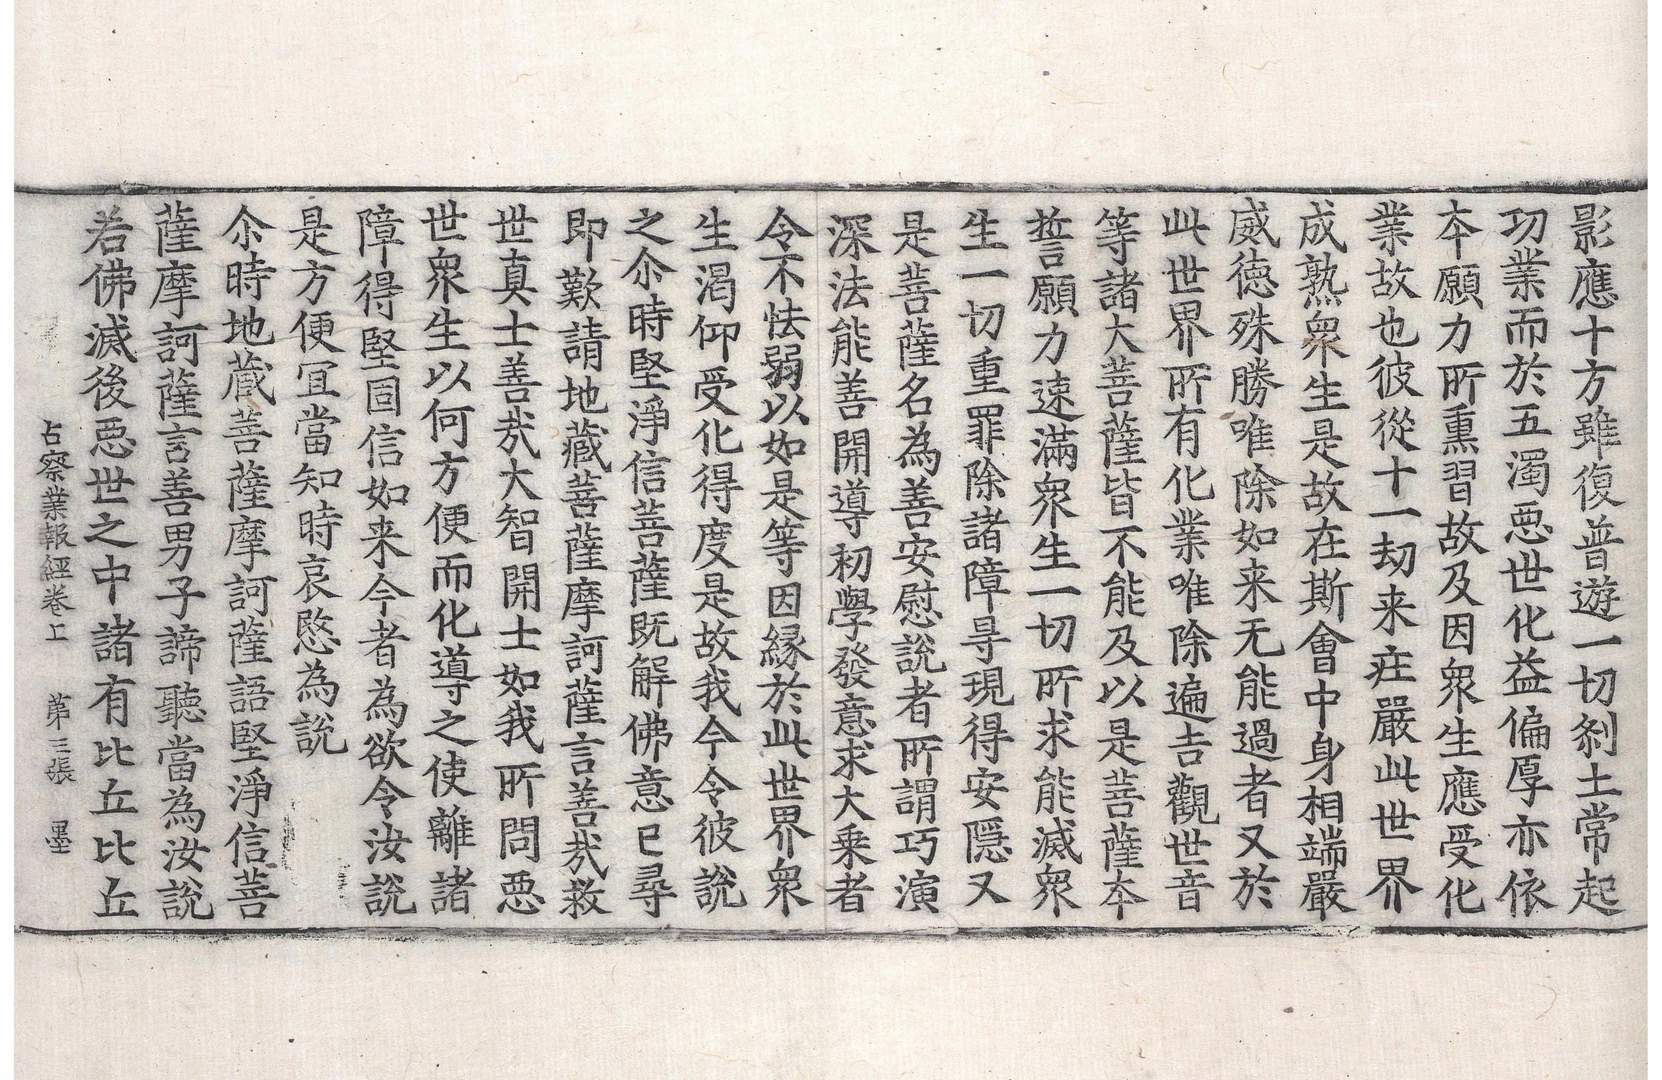 影應十方雖復普遊一切刹土常起
功業而於五濁惡世化益偏厚亦依
本願力所熏習故及因衆生應受化
業故也彼從十一劫来莊嚴此世界
成熟衆生是故在斯會中身相端嚴
威德殊勝唯除如来无能過者又於
此世界所有化業唯除遍吉觀世音
等諸大菩薩皆不能及以是菩薩本
誓願力速滿衆生一切所求能滅衆
生一切重罪除諸障㝵現得安隱又
是菩薩名為善安慰說者所謂巧演
深法能善開導初學發意求大乗者
令不怯弱以如是等因緣於此世界衆
生渴仰受化得度是故我今令彼說
之尒時堅淨信菩薩既解佛意已尋
即歎請地藏菩薩摩訶薩言善㢤救
世真士善㢤大智開士如我所問惡
世衆生以何方便而化導之使離諸
障得堅固信如来今者為欲令汝說
是方便宜當知時哀愍為說
尒時地藏菩薩摩訶薩語堅淨信菩
薩摩訶薩言善男子諦聽當為汝說
若佛滅後惡世之中諸有比丘比丘
占察業報經卷上　第三張　墨